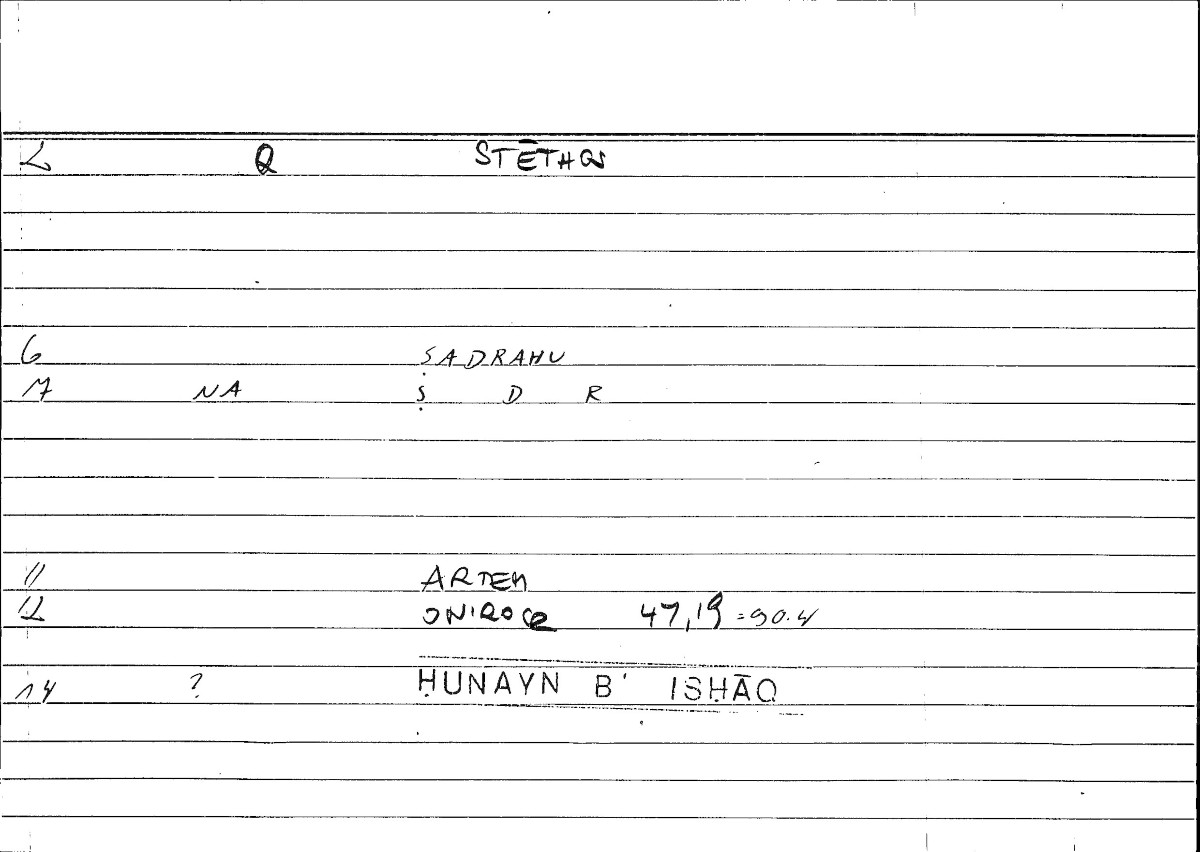 2 Q STĒTHOS
6 ṢADRAHU
7 NA Ṣ D R
11 ARTEM
12 ONIROCR 47,19 =90.4
14 ? ḤUNAYN B' ISḤĀQ